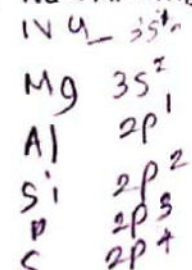 Mg 3s²
Al 2p¹
Si 2p²
P 2p³
S 2p⁴